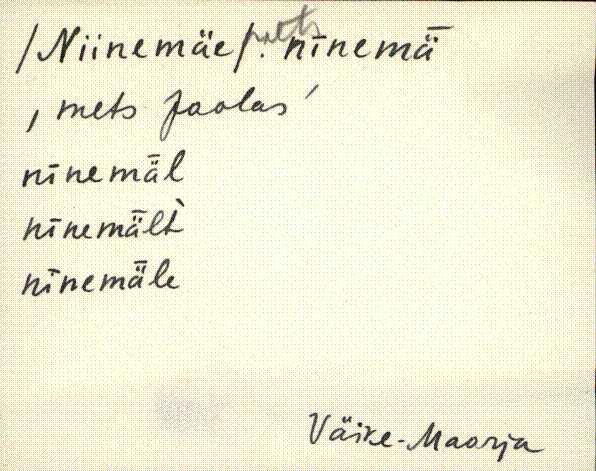 mets
/Niinemäe/. nīnemǟ
, mets Paolas ´
nīnemǟl
nīnemǟlt̀
nīnemǟle
Väike-Maarja